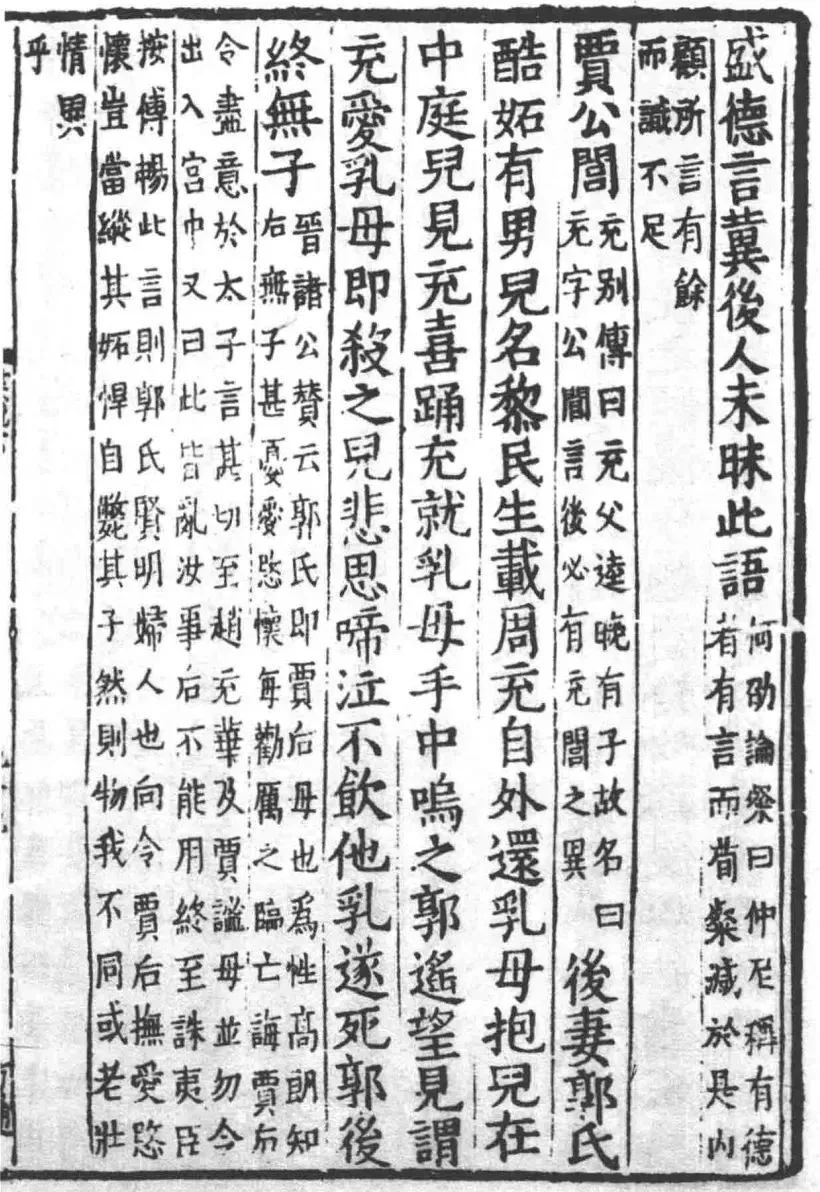 盛德言冀後人未昧此語何劭論粲曰仲尼稱有德者有言而荀粲減於是内
顧所言有餘而識不足
賈公閭充别傳曰充父逵晚有子故名曰充字公閭言後必有充閭之異後妻郭氏
酷妬有男兒名黎民生載周充自外還乳母抱兒在
中庭兒見充喜踊充就乳母手中嗚之郭遙望見謂
充愛乳母即殺之兒悲思啼泣不飲他乳遂死郭後
終無子晉諸公賛云郭氏即賈后母也爲性高朗知后無子甚憂愛愍懷每勸厲之臨亡誨賈后
令盡意於太子言甚切至趙充華及賈謐母並勿令出入宮中又曰此皆亂汝事后不能用終至誅夷臣
按傅暢此言則郭氏賢明婦人也向令賈后撫愛愍懷豈當縱其妬悍自斃其子然則物我不同或老壯
情異乎